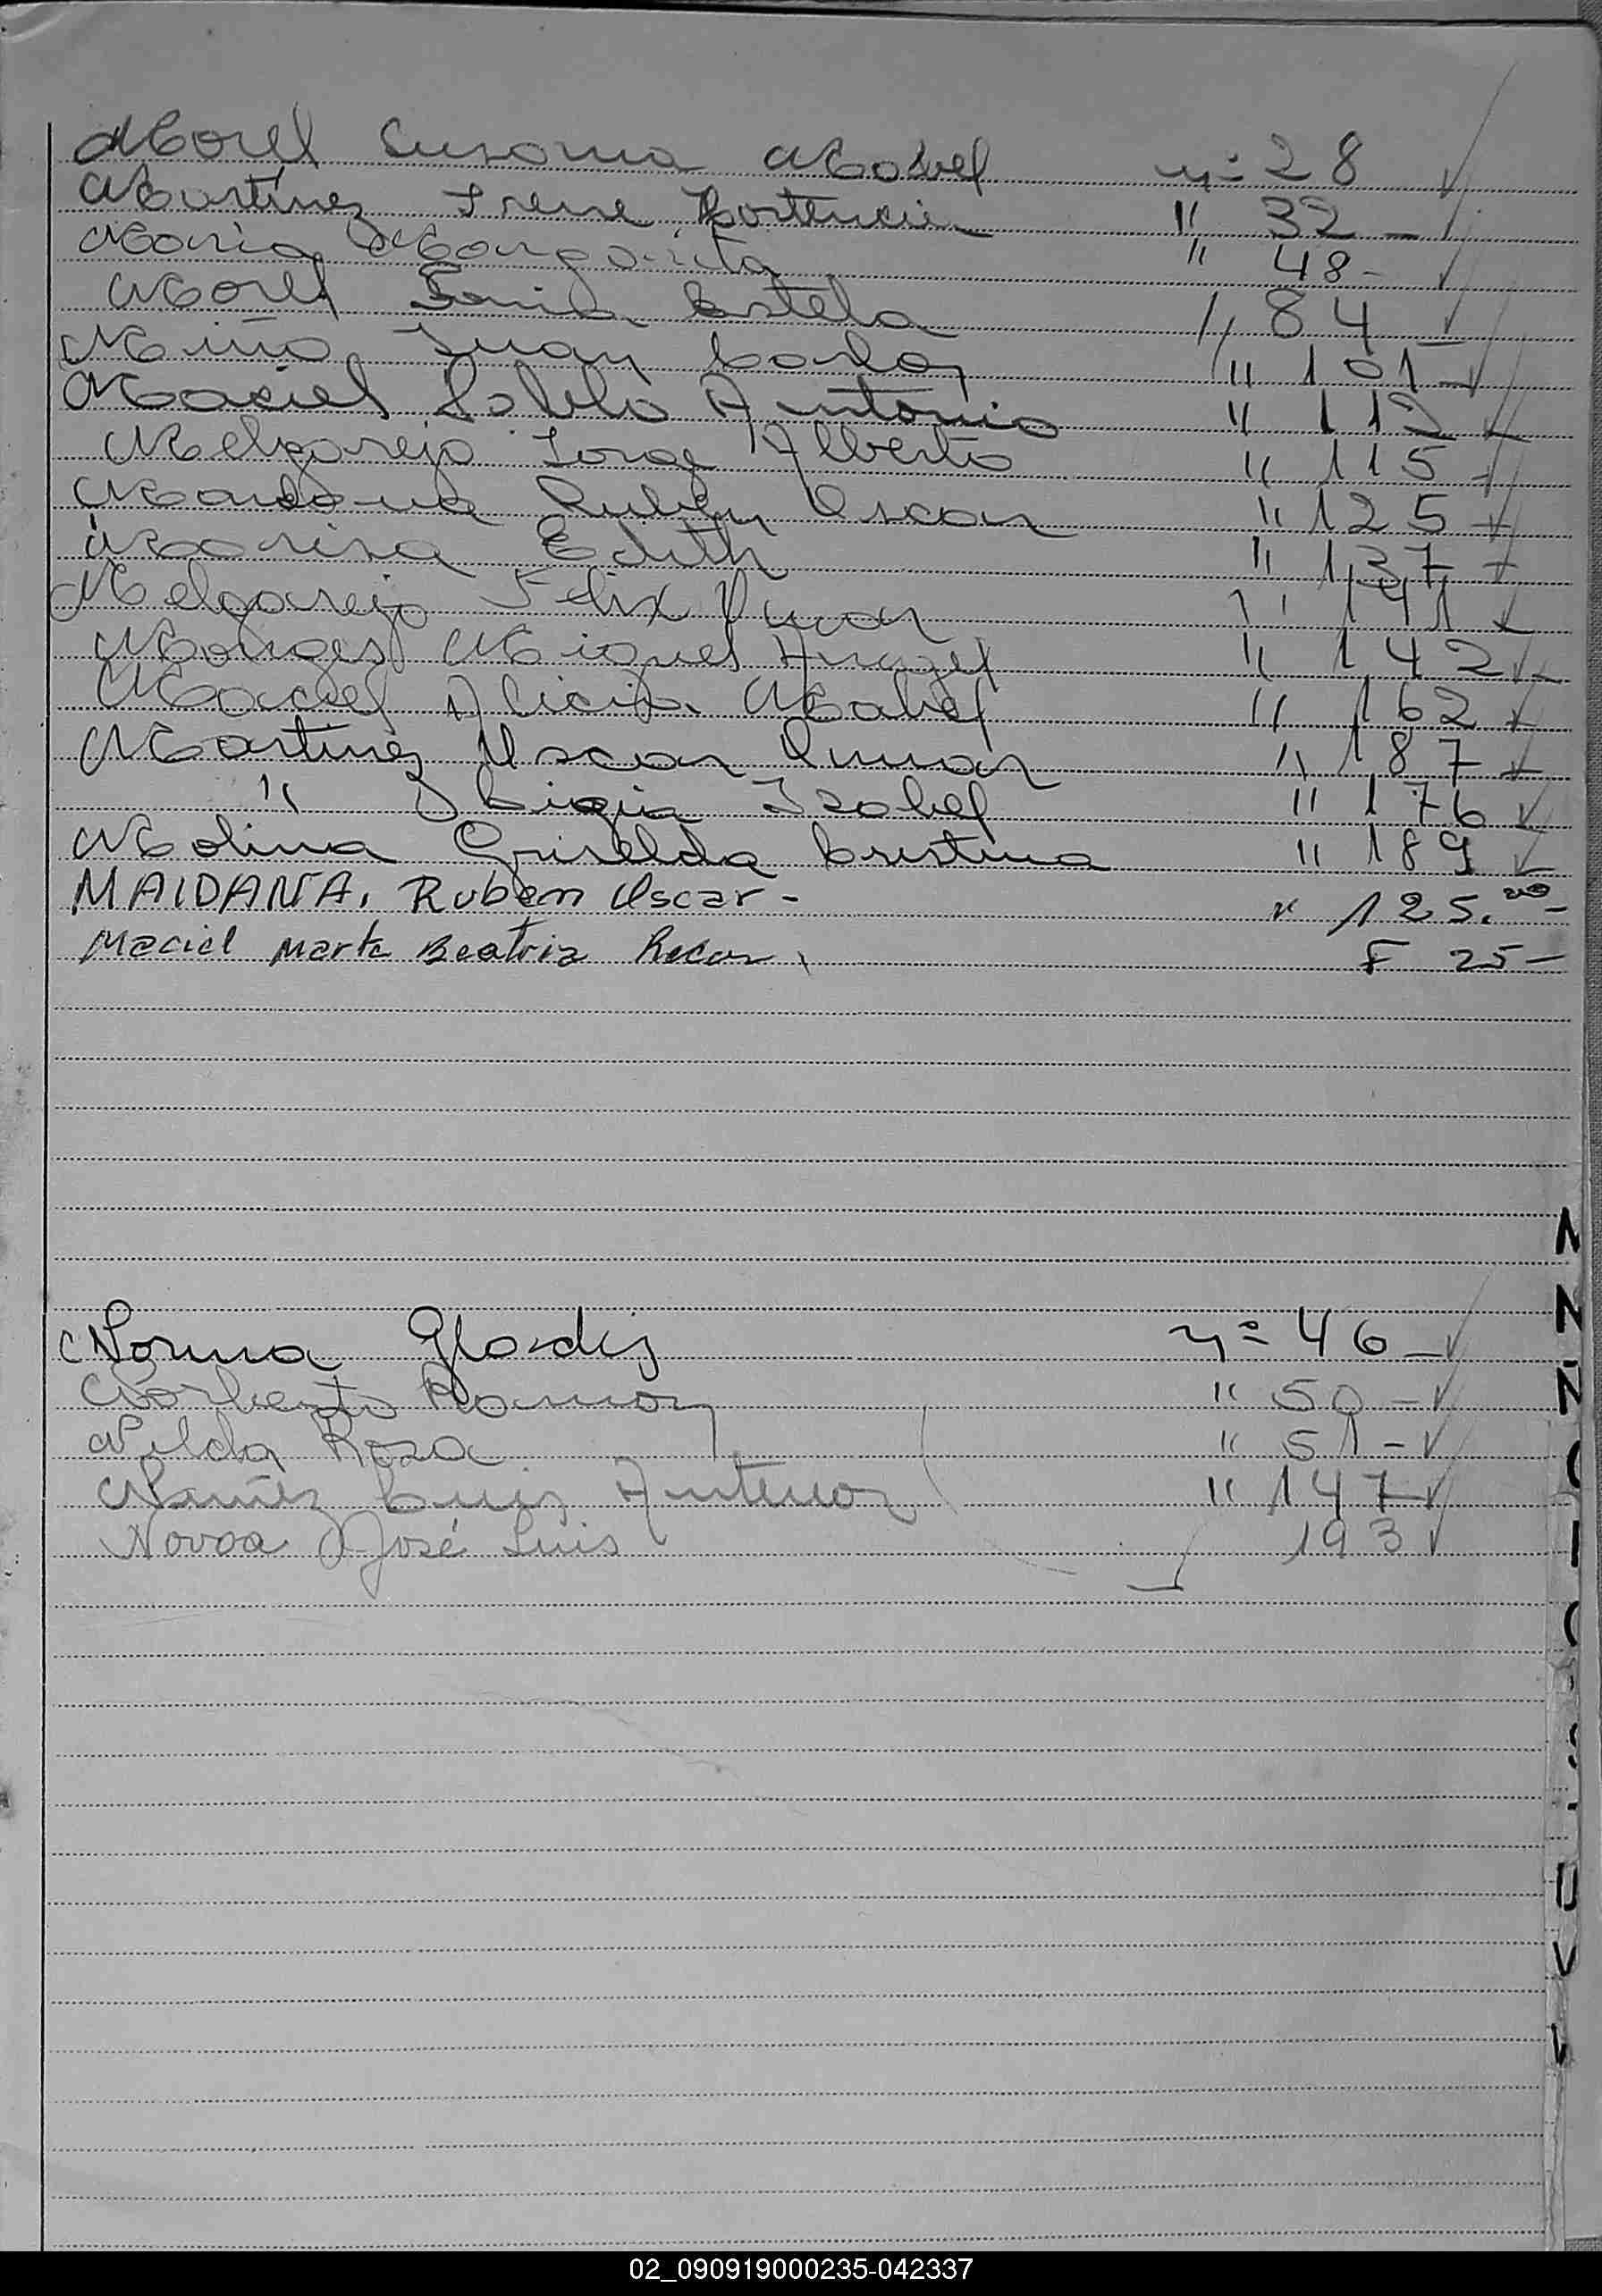 Morel Susana Mabel nº 28
Martínez Irene Hortencia " 32 -
Maria Margarita " 48 -
Morel Estela " 84 -
Miño Juan Carlos " 101 -
Maciel Pablo Antonio " 112 -
Melgarejo Jorge Alberto " 115 -
Maidana Rubén Oscar " 125 -
Marisa Edith " 137 -
Melgarejo Felix Omar " 141 -
Monges Miguel Angel " 142 -
Maciel Alicia Mabel " 162 -
Martinez Oscar Omar " 187 -
" Ligia Isabel " 176
Molina Griselda Cristina " 189
MAIDANA, Ruben Oscar - " 125.
Maciel Marta Beatriz F 25 -
Norma Gladis nº 46 -
Norberto Ramon " 50 -
Nelda Rosa " 51 -
Nuñez Luis Antenor " 147
Novoa José Luis 193
N
N
Ñ
O
S
T
U
V
02_090919000235-042337